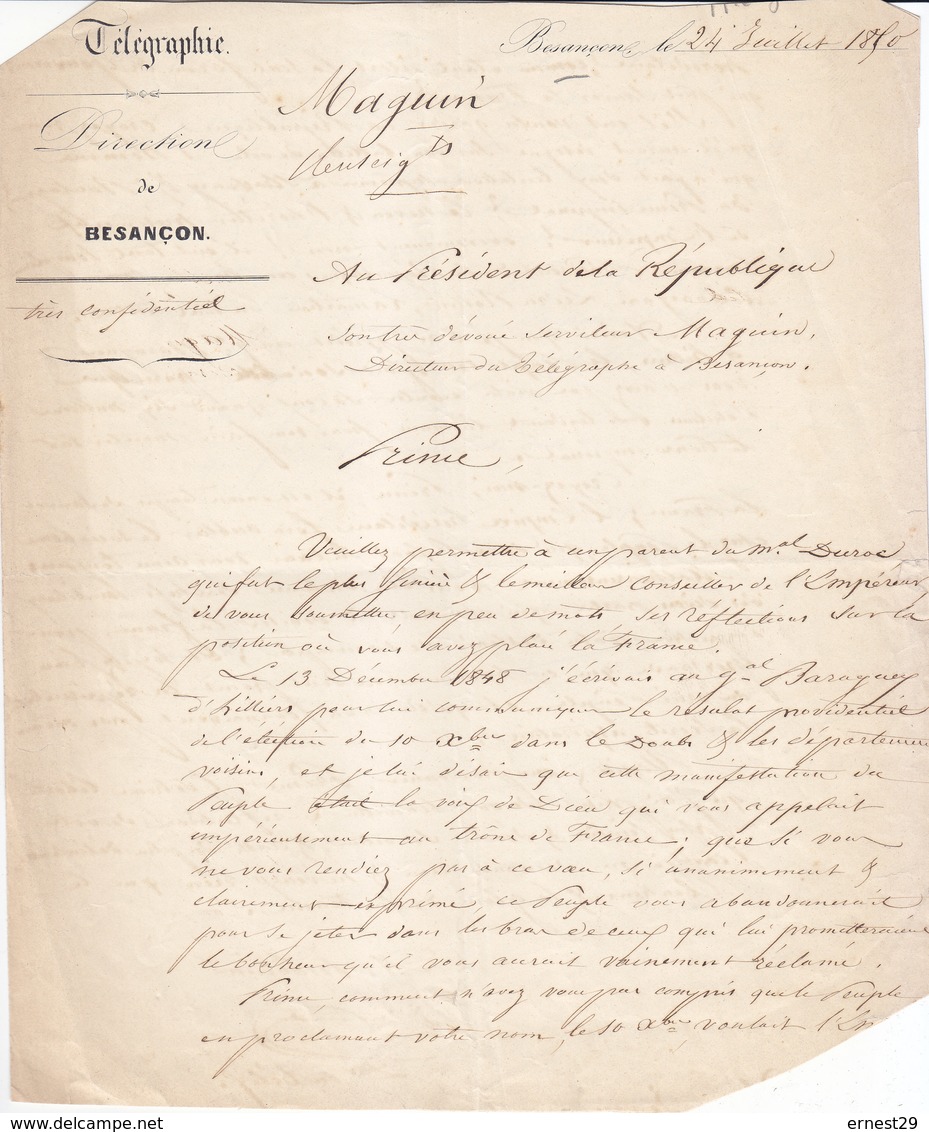 Télégraphie.
Besançon, le 24 Juillet 1850
Direction
de
BESANÇON.
Maguin
très confidentiel
Au Président de la République
Son très dévoué Serviteur Maguin,
Directeur du Télégraphe à Besançon.
Prince,
Veuillez permettre à un parent du mal Duroc
qui fut le plus sincère & le meilleur conseiller de l'Empéreur
de vous soumettre, en peu de mots, ses réflections sur la
position où vous avez placé la France.
Le 13 Décembre 1848 j'écrivais au gal Baraguey
d'hilliers pour lui communiquer le résultat providentiel
de l'éléction du 10 Xbre dans le Doubs & les départemens
voisins, et je lui disais que cette manifestation du
Peuple était la voix de Dieu qui vous appelait
impérieusement au trône de France; que si vous
ne vous rendiez pas à ce vœu, si unanimement &
clairement exprimé, ce Peuple vous abandonnerait
pour se jeter dans les bras de ceux qui lui promettraient
le bonheur qu'il vous aurait vainement réclamé.
Prince, comment n'avez vous pas compris que le Peuple
en proclamant votre nom, le 10 Xbre, voulait
ernest29